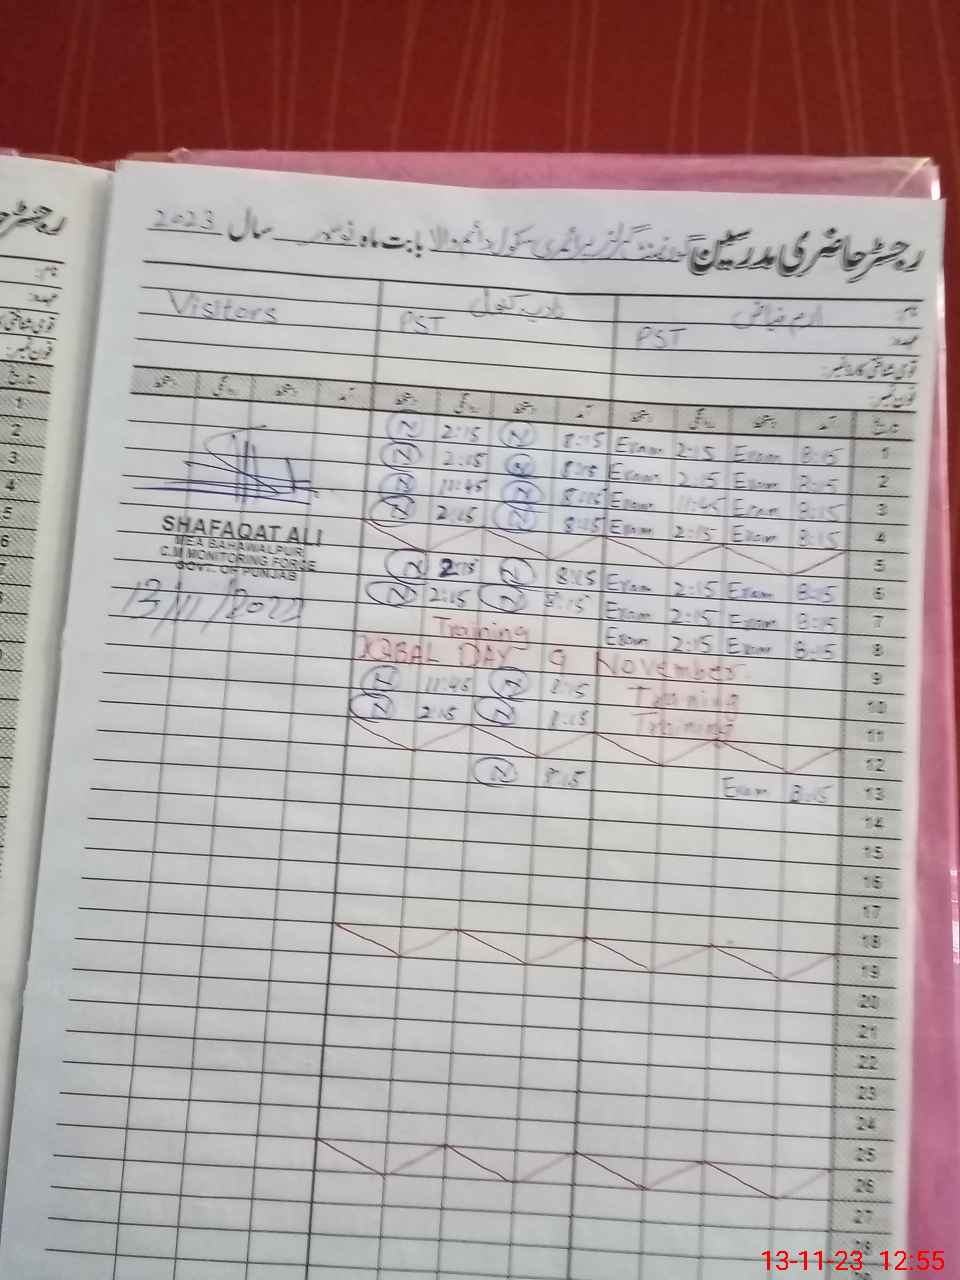 رجسٹر حاضری مدرسین گورنمنٹ گرلز پرائمری سکول بابت ماہ نومبر سال 2023
نام ارم فیاض نادیہ کنول Visitors
عہدہ PST PST
قومی شناختی کارڈ نمبر:
فون نمبر:
تاریخ آمد دستخط روانگی دستخط آمد دستخط روانگی دستخط آمد دستخط روانگی دستخط
1 8:15 Eram 2:15 Eram 8:15 N 2:15 N
2 8:15 Eram 2:15 Eram 8:15 N 2:15 N
3 8:15 Eram 11:45 Eram 8:15 N 11:45 N
4 8:15 Eram 2:15 Eram 8:15 N 2:15 N
5
6 8:15 Eram 2:15 Eram 8:15 N 2:15 N
7 8:15 Eram 2:15 Eram 8:15 N 2:15 N
8 8:15 Eram 2:15 Eram Training
9 IQBAL DAY 9 November
10 Training 8:15 N 11:45 N
11 Training 8:15 N 2:15 N
12
13 8:15 Eram 8:15 N
14
15
16
17
18
19
20
21
22
23
24
25
26
27
28
SHAFAQAT ALI
MEA BAHAWALPUR
C.M MONITORING FORCE
GOVT. OF PUNJAB
13/11/2023
رجسٹر
نام:
عہدہ:
فون نمبر:
تاریخ
1
2
3
4
5
6
13-11-23 12:55